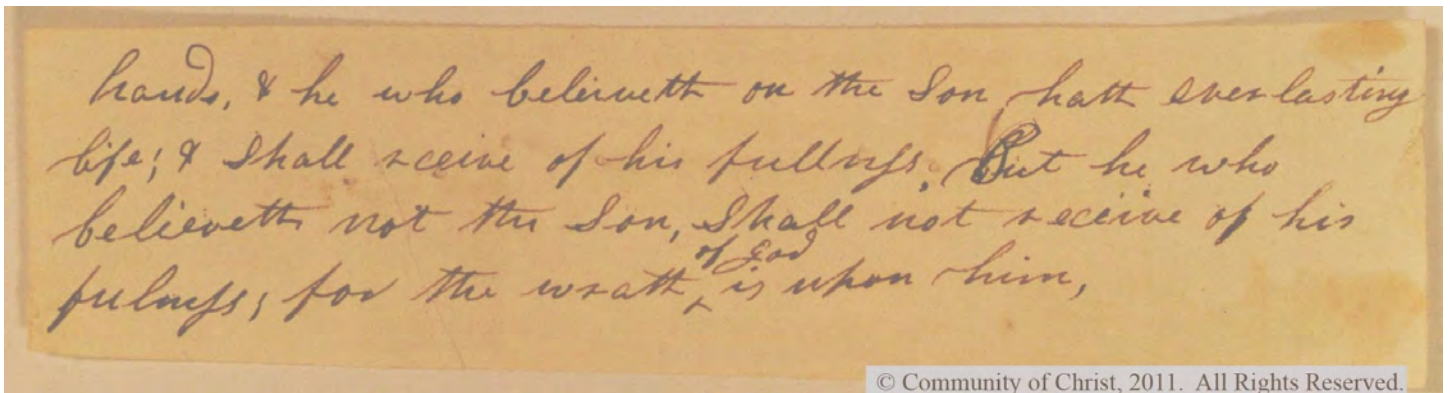 hands, & he who believeth on the Son, hath everlasting
life; & shall receive of his fullness. But he who
believeth not the Son, shall not receive of his
of God
fulness; for the wrath ^ is upon him,
© Community of Christ, 2011. All Rights Reserved.